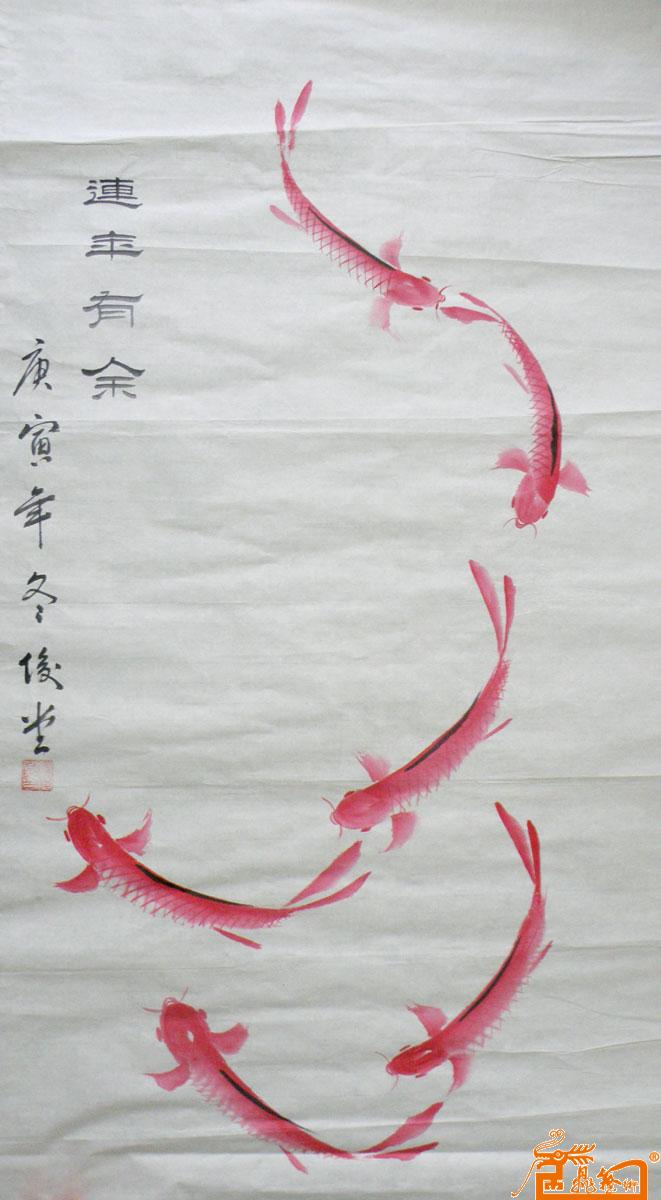 連年有余
庚寅年冬俊堂